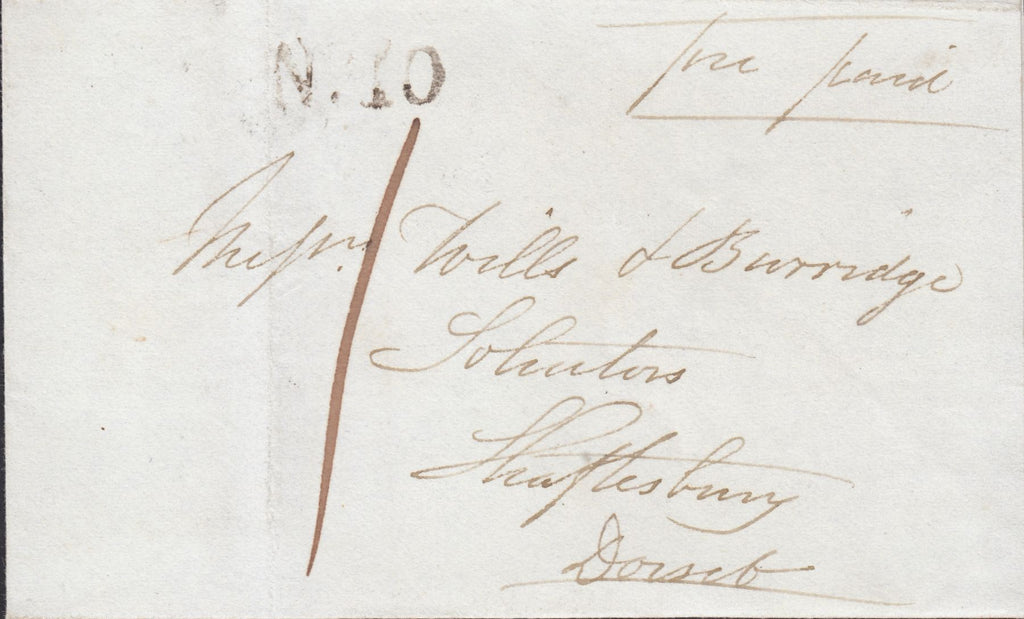 pre paid
N. 10
1
Messrs. Wills & Burridge
Solicitors
Shaftesbury
Dorset